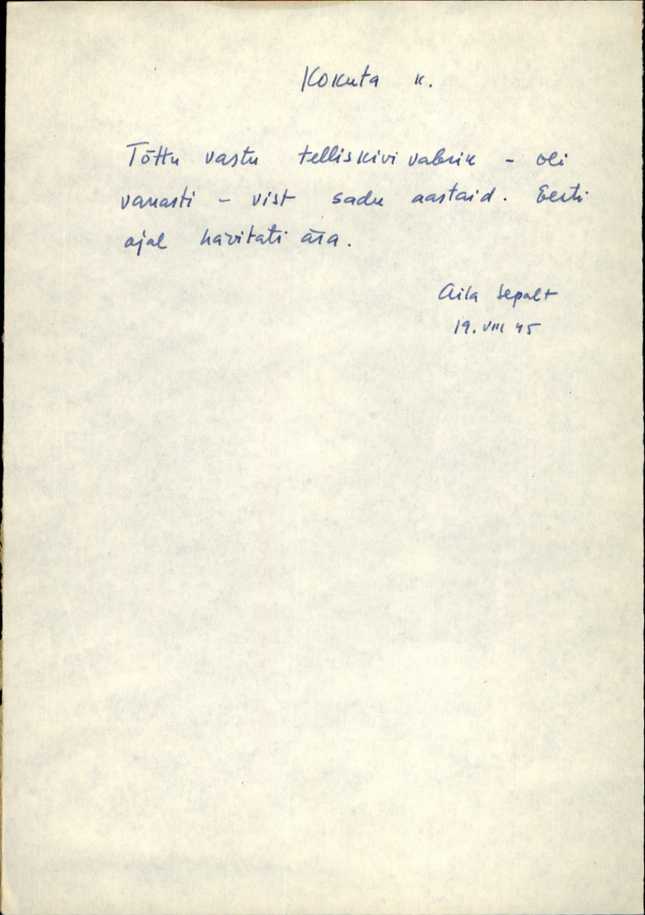 Kokuta k.
Tõttu vastu telliskivi vabrik - oli
vanasti - vist sadu aastaid. Eesti
ajal hävitati ära.
Aila Sepalt
19. VIII 45